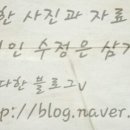 한 사진과 자료
인 수정은 삼가
다한 블로그v
p://blog.naver.